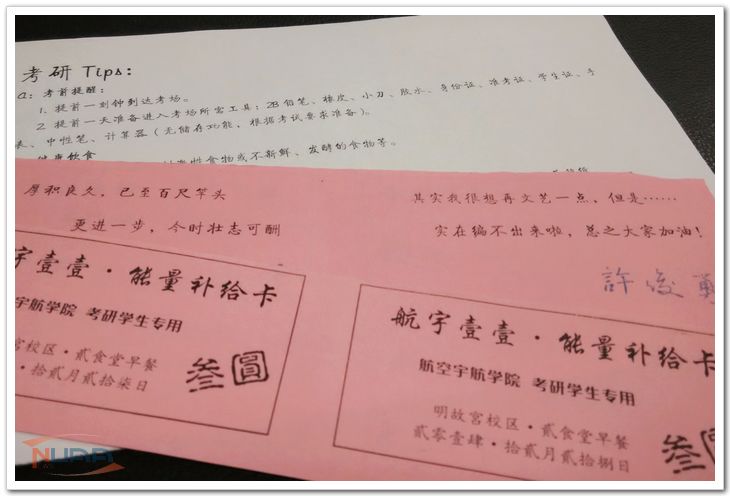 考研 Tips:
a: 考前提醒:
1. 提前一刻钟到达考场。
2. 提前一天准备进入考场所需工具: 2B 铅笔、橡皮、小刀、胶水、身份证、准考证、学生证、手
表、中性笔、计算器(无储存功能, 根据考试要求准备)。
健康饮食
性食物或不新鲜、发酵的食物等。
厚积良久, 已至百尺竿头
更进一步, 今时壮志可酬
其实我很想再文艺一点, 但是……
实在编不出来啦, 总之大家加油!
許俊勇
宇壹壹·能量补给卡
宇航学院 考研学生专用
宫校区·貳食堂早餐
·拾貳月貳拾柒日
叁圓
航宇壹壹·能量补给卡
航空宇航学院 考研学生专用
明故宫校区·貳食堂早餐
貳零壹肆·拾貳月貳拾捌日
叁圓
NUAA